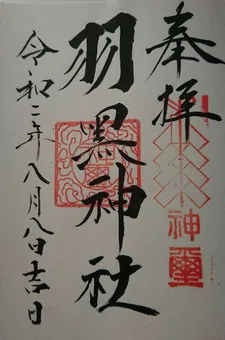 奉拝
神璽
羽黑神社
令和二年八月八日吉日